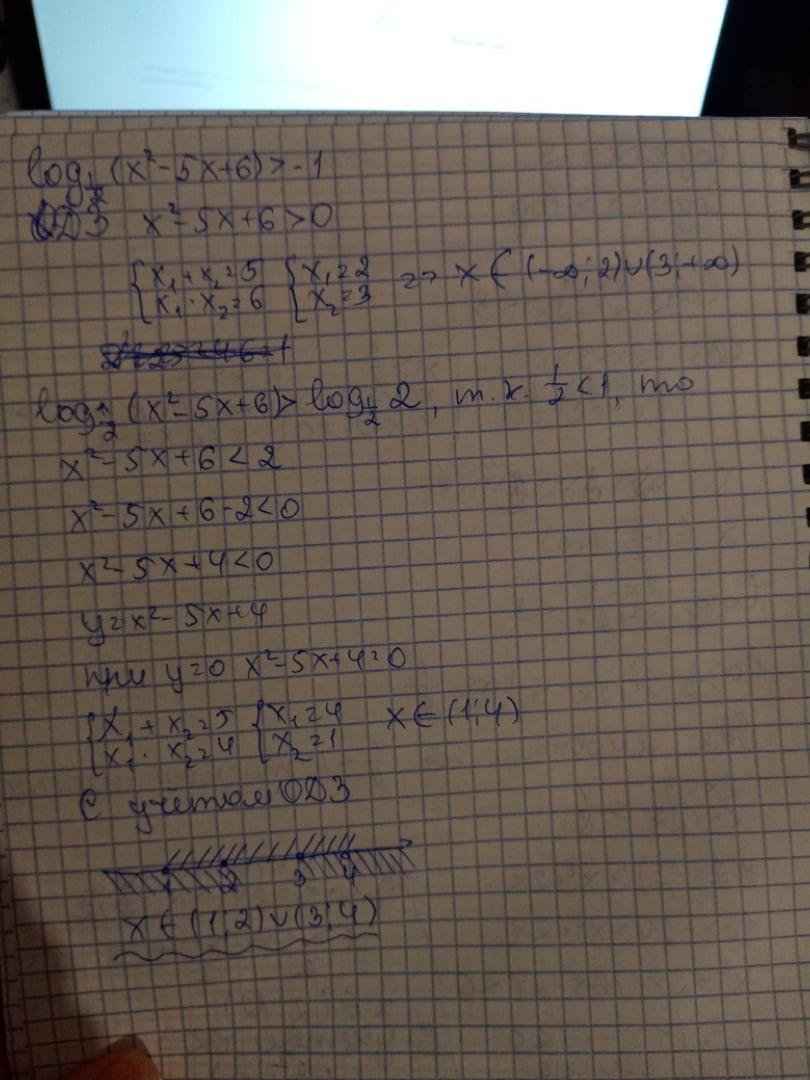 log₁/₂ (x²-5x+6)>-1
ОДЗ x²-5x+6>0
{x₁+x₂=5 {x₁=2 => x∈(-∞;2)∪(3;+∞)
{x₁·x₂=6 {x₂=3
log₁/₂ (x²-5x+6)>log₁/₂ 2, т.к. 1/2<1, то
x²-5x+6<2
x²-5x+6-2<0
x²-5x+4<0
y=x²-5x+4
при y=0 x²-5x+4=0
{x₁+x₂=5 {x₁=4 x∈(1;4)
{x₁·x₂=4 {x₂=1
С учетом ОДЗ
1 2 3 4
x∈(1;2)∪(3;4)